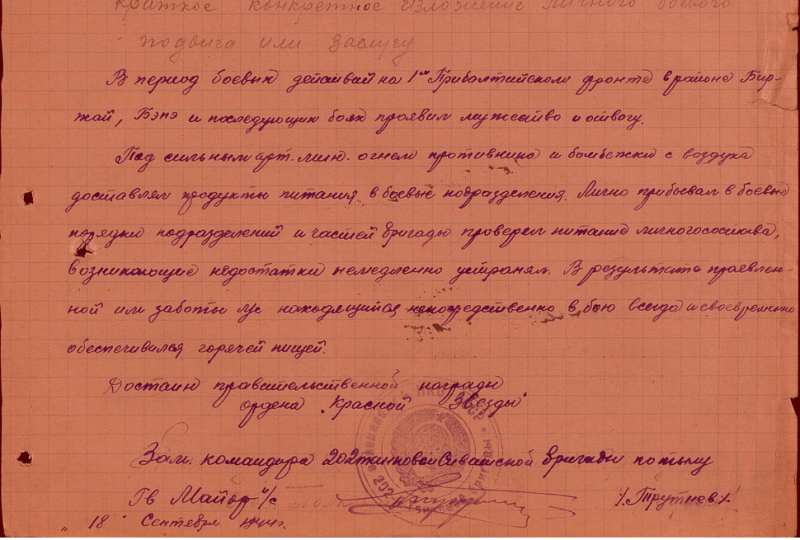 краткое конкретное изложение личного боевого
подвига или заслуг
В период боевых действий на 1ом Прибалтийском фронте в районе Бир-
жай, Бэнэ и последующих боях проявил мужество и отвагу.
Под сильным арт. мин. огнем противника и бомбежки с воздуха
доставлял продукты питания, в боевые подразделения. Лично прибывал в боевые
порядки подразделений и частей бригады проверял питание личного состава,
возникающие недостатки немедленно устранял. В результате проявлен-
ной им заботы л/с находящийся непосредственно в бою всегда и своевременно
обеспечивался горячей пищей.
Достоин правительственной награды
ордена "Красной Звезды"
Зам. командира 202 танковой Сивашской бригады по тылу
Гв Майор и/с /.Трутнев./
"18" Сентября 1944г.